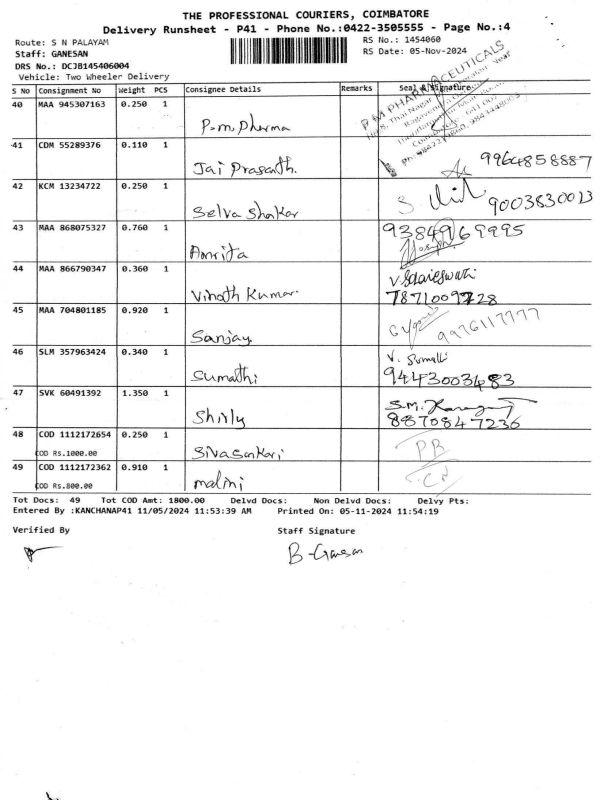 THE PROFESSIONAL COURIERS, COIMBATORE
Delivery Runsheet - P41 - Phone No.:0422-3505555 - Page No.:4
Route: S N PALAYAM RS No.: 1454060
Staff: GANESAN RS Date: 05-Nov-2024
DRS No.: DCJB145406004
Vehicle: Two Wheeler Delivery
S No Consignment No Weight PCS Consignee Details Remarks Seal & Signature
40 MAA 945307163 0.250 1
P.m Pharma
P M PHARMACEUTICALS
41 CDM 55289376 0.110 1
Jai Prasanth. 9964858887
42 KCM 13234722 0.250 1
Selva Shakar 9003830023
43 MAA 868075327 0.760 1 9384969995
Amrita
44 MAA 866790347 0.360 1
Vinoth Kumar. 7871009728
45 MAA 704801185 0.920 1
Sanjay. 9976117777
46 SLM 357963424 0.340 1 V. Sumathi
Sumathi 9443003483
47 SVK 60491392 1.350 1 S.M.
Shirly 8870847236
48 COD 1112172654 0.250 1 PB
COD Rs.1000.00 Sivasankari
49 COD 1112172362 0.910 1
COD Rs.800.00 malini
Tot Docs: 49 Tot COD Amt: 1800.00 Delvd Docs: Non Delvd Docs: Delvy Pts:
Entered By :KANCHANAP41 11/05/2024 11:53:39 AM Printed On: 05-11-2024 11:54:19
Verified By Staff Signature
B-Ganesan